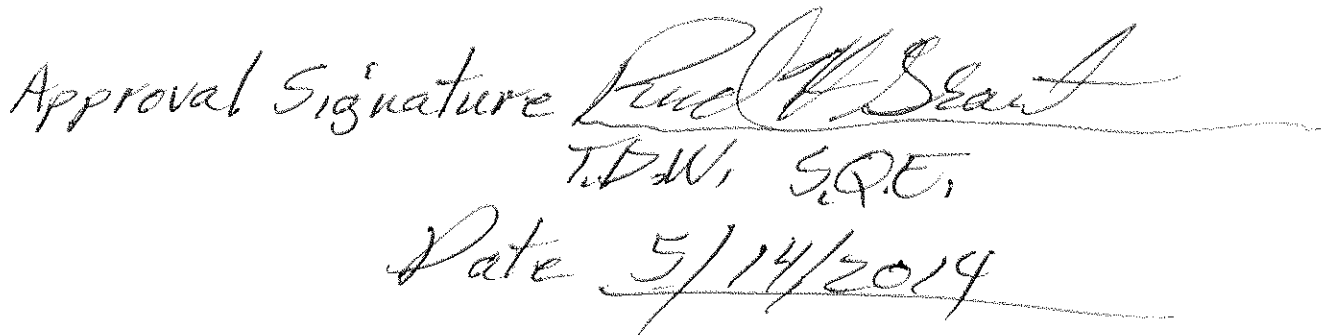 Approval Signature
T.D.W. S.Q.E.
Date 5/14/2014